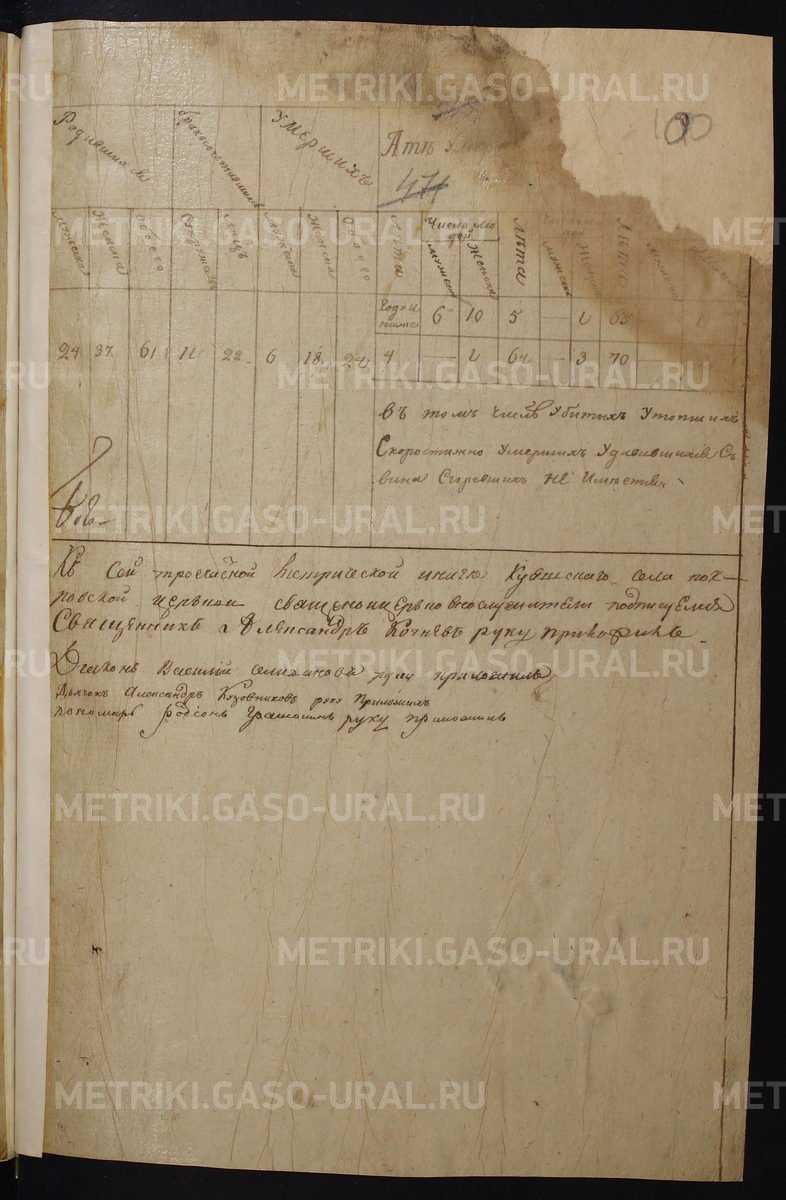 METRIKI.GASO-URAL.RU
100
Родившихся
бракосочетавшихся
Умершихъ
Атъ
471
мужеска
женска
обоего
Супружествъ
лицъ
мужеска
женска
обоего
лѣта
Число лю
дей
мужеска
женска
лѣта
мужеска
женска
лѣта
Году и
ниже 6 10 5 — 65
24 37 61 11 22 6 18 24 4 — 64 — 3 70 —
въ томъ числѣ Убитыхъ Утопшихъ
Скоропостижно Умершихъ Удавившихся Съ
вина Сгоревшихъ не Имѣется
Къ Сей троечастной книге села пок-
ровской церкви священно церковнослужители подписуемся
Священникъ Александръ Кочневъ руку приложилъ
Диаконъ Василий руку приложилъ
Дьячокъ Александръ Кузовниковъ руку Приложилъ
пономарь Родіонъ руку приложилъ